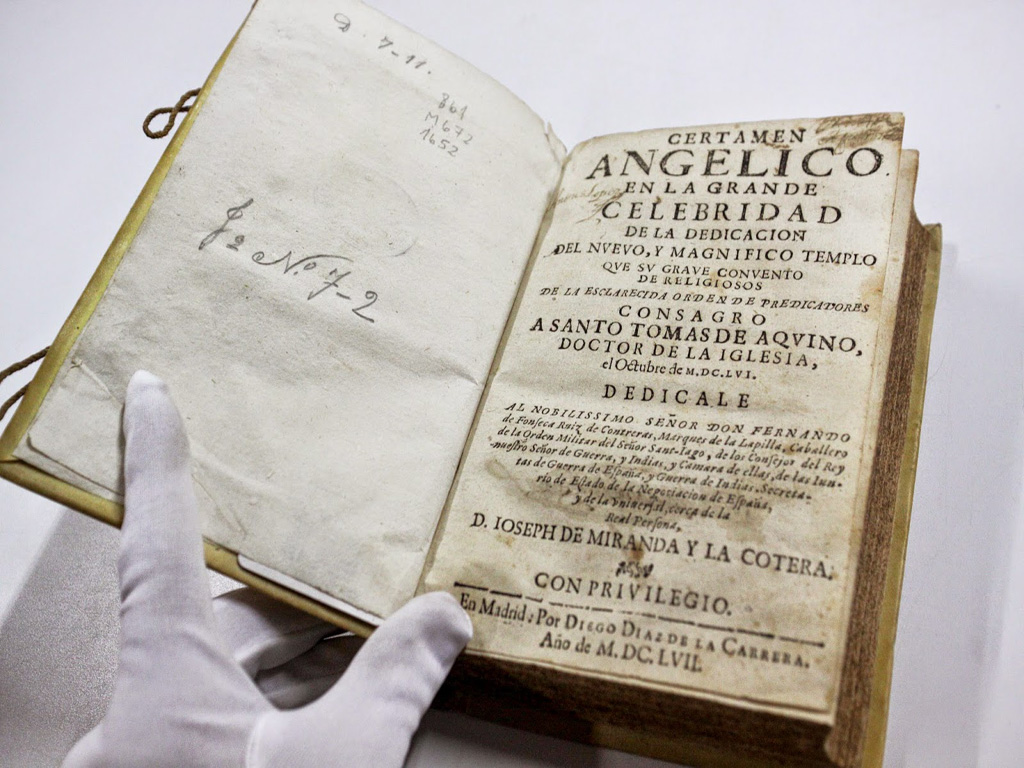 D. 7-11.
861
M672
1652
J 2 N.o 7-2
CERTAMEN
ANGELICO.
EN LA GRANDE
CELEBRIDAD
DE LA DEDICACION
DEL NVEVO, Y MAGNIFICO TEMPLO
QVE SV GRAVE CONVENTO
DE RELIGIOSOS
DE LA ESCLARECIDA ORDEN DE PREDICADORES
CONSAGRO
A SANTO TOMAS DE AQVINO,
DOCTOR DE LA IGLESIA,
el Octubre de M.DC.LVI.
DEDICALE
AL NOBILISSIMO SEÑOR DON FERNANDO
de Fonseca Ruiz de Contreras, Marques de la Lapilla, Caballero
de la Orden Militar del Señor Sant-Iago, de los Consejos del Rey
nuestro Señor de Guerra, y Indias, y Camara de ellas, de las Iun-
tas de Guerra de España, y Guerra de Indias, Secreta-
rio de Estado de la Negociacion de España,
y de la Vniuersal, cerca de la
Real Persona,
D. IOSEPH DE MIRANDA Y LA COTERA.
CON PRIVILEGIO.
En Madrid: Por DIEGO DIAZ DE LA CARRERA.
Año de M.DC.LVII.